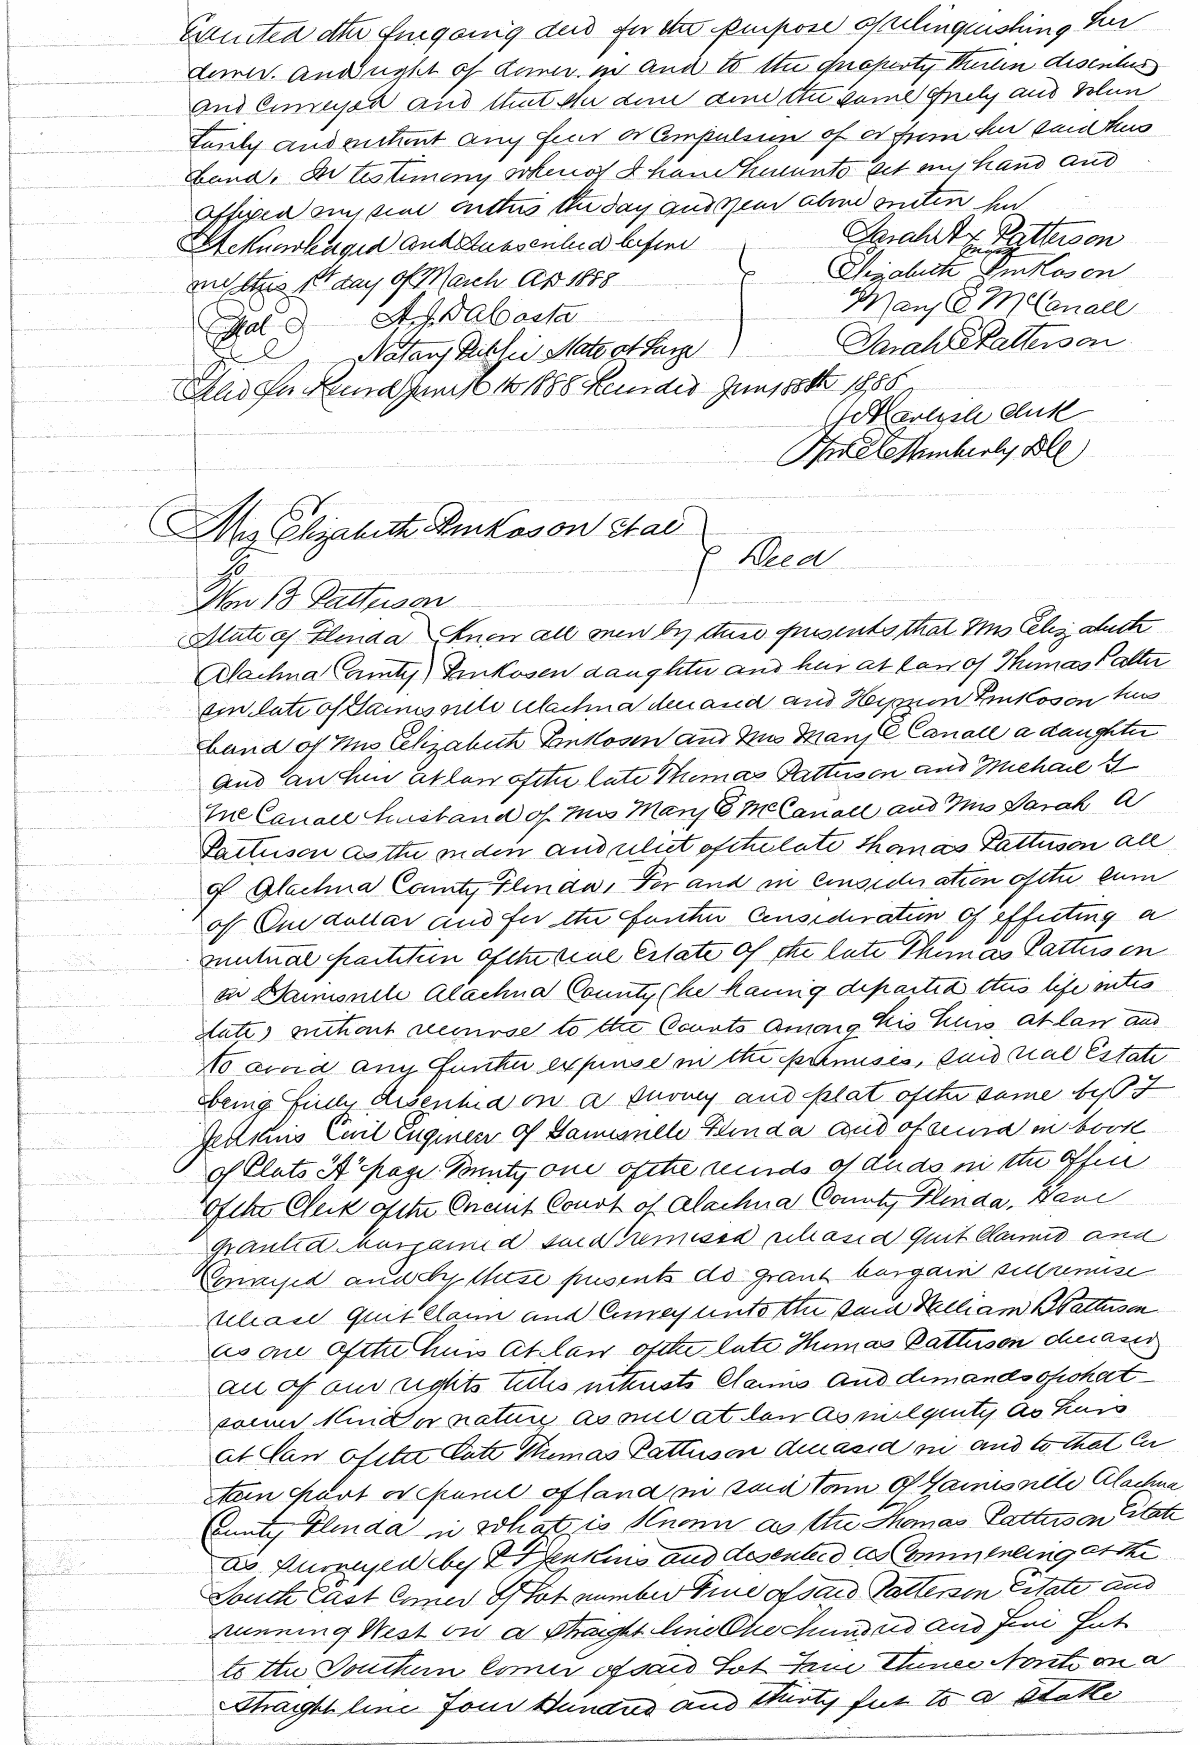 Executed the foregoing deed for the purpose of relinquishing her
dower. and right of dower. in and to the property therein described
and Conveyed and that she done done the same freely and Volun
tarily and without any fear or Compulsion of or from her said hus
band. In testimony whereof I have hereunto set my hand and
affixed my seal on this the day and year above written her
Acknowledged and Subscribed before
Sarah A x Patterson
mark
me this 1st day of March AD 1888
Elizabeth Pinkoson
Mary E McCanall
Seal
A. J. DaCosta
Notary Public State at Large
Sarah E Patterson
Filed for Record June 16th 1888 Recorded June 18th 1888
Clerk
Per Wimberly DC
Mrs Elizabeth Pinkoson et al
To
Deed
Wm B Patterson
State of Florida ) Know all men by these presents that Mrs Elizabeth
Alachua County ) Pinkosen daughter and heir at law of Thomas Patter
son late of Gainesville Alachua deceased and Pinkoson hus
band of Mrs Elizabeth Pinkosen and Mrs Mary E Canall a daughter
and an heir at law of the late Thomas Patterson and Michael G
McCanall husband of Mrs Mary E McCanall and Mrs Sarah A
Patterson as the widow and relict of the late Thomas Patterson all
of Alachua County Florida, For and in consideration of the sum
of One dollar and for the further Consideration of effecting a
mutual partition of the real Estate of the late Thomas Patterson
in Gainesville Alachua County (he having departed this life intes
tate) without recourse to the Courts among his heirs at law and
to avoid any further expense in the premises, said real Estate
being fully described on a survey and plat of the same by P F
Jenkins Civil Engineer of Gainesville Florida and of record in book
of Plats "A" page Twenty one of the records of deeds in the office
of the Clerk of the Circuit Court of Alachua County Florida, Have
granted bargained sued remised released quit Claimed and
Conveyed and by these presents do grant bargain sell remise
release quit Claim and Convey unto the said William B Patterson
as one of the heirs at law of the late Thomas Patterson deceased
all of our rights titles interests Claims and demands of what
soever kind or nature as well at law as in equity as heirs
at law of the late Thomas Patterson deceased in and to that Cer
tain part or parcel of land in said town of Gainesville Alachua
County Florida in what is known as the Thomas Patterson Estate
as surveyed by P F Jenkins and described as Commencing at the
South East Corner of Lot number Five of said Patterson Estate and
running West on a straight line One hundred and five feet
to the Southern Corner of said Lot Five thence North on a
straight line Four Hundred and thirty feet to a stake